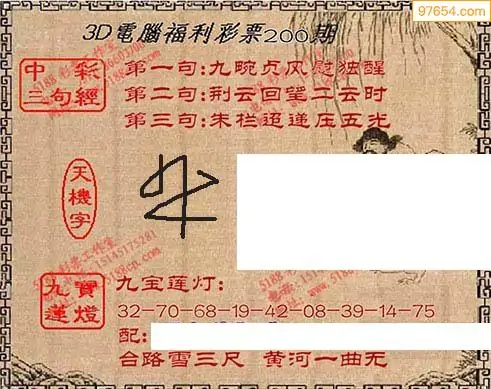 97654.com
3D電腦福利彩票200期
中彩
三句經
第一句:九畹贞风慰独醒
第二句:荆云回望二云时
第三句:朱栏迢递压五光
天機字
5188 彩票工作室
15145175281
5188cn.com
九寶
蓮燈
九宝莲灯:
32-70-68-19-42-08-39-14-75
配:
台路雪三尺 黄河一曲无